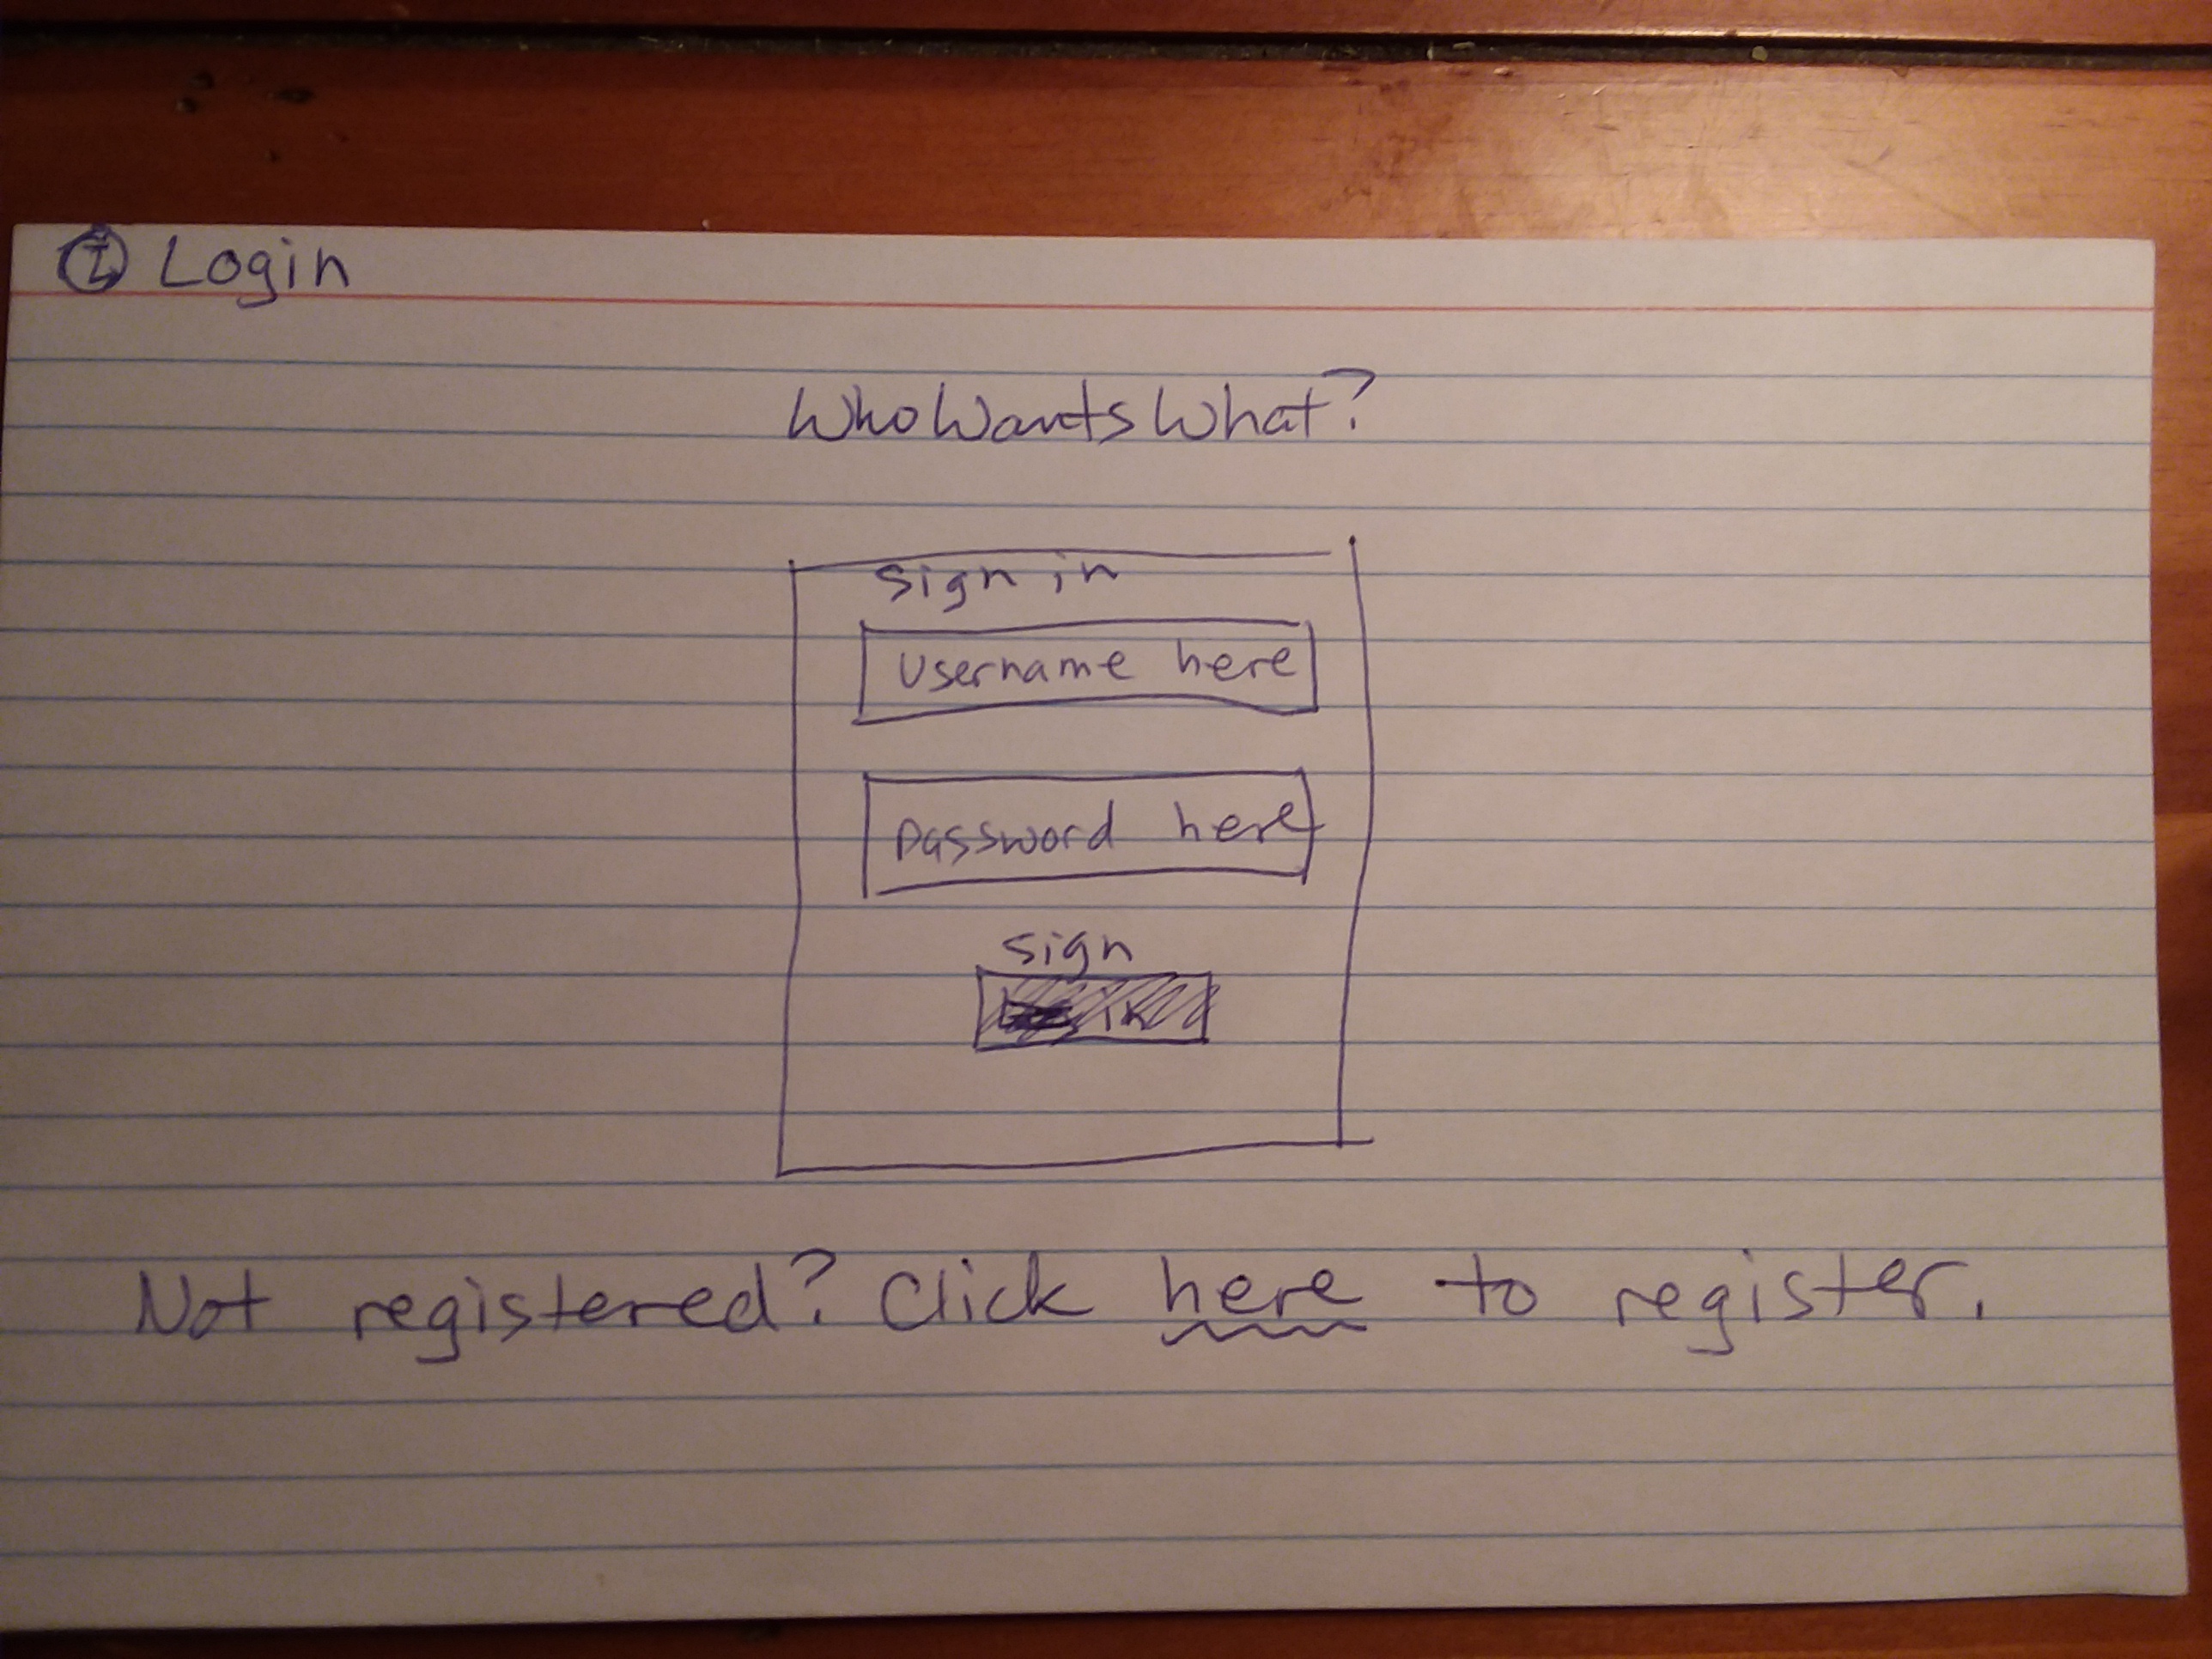 Login
WhoWantsWhat?
Sign in
Username here
password here
sign
in
Not registered? Click here to register.